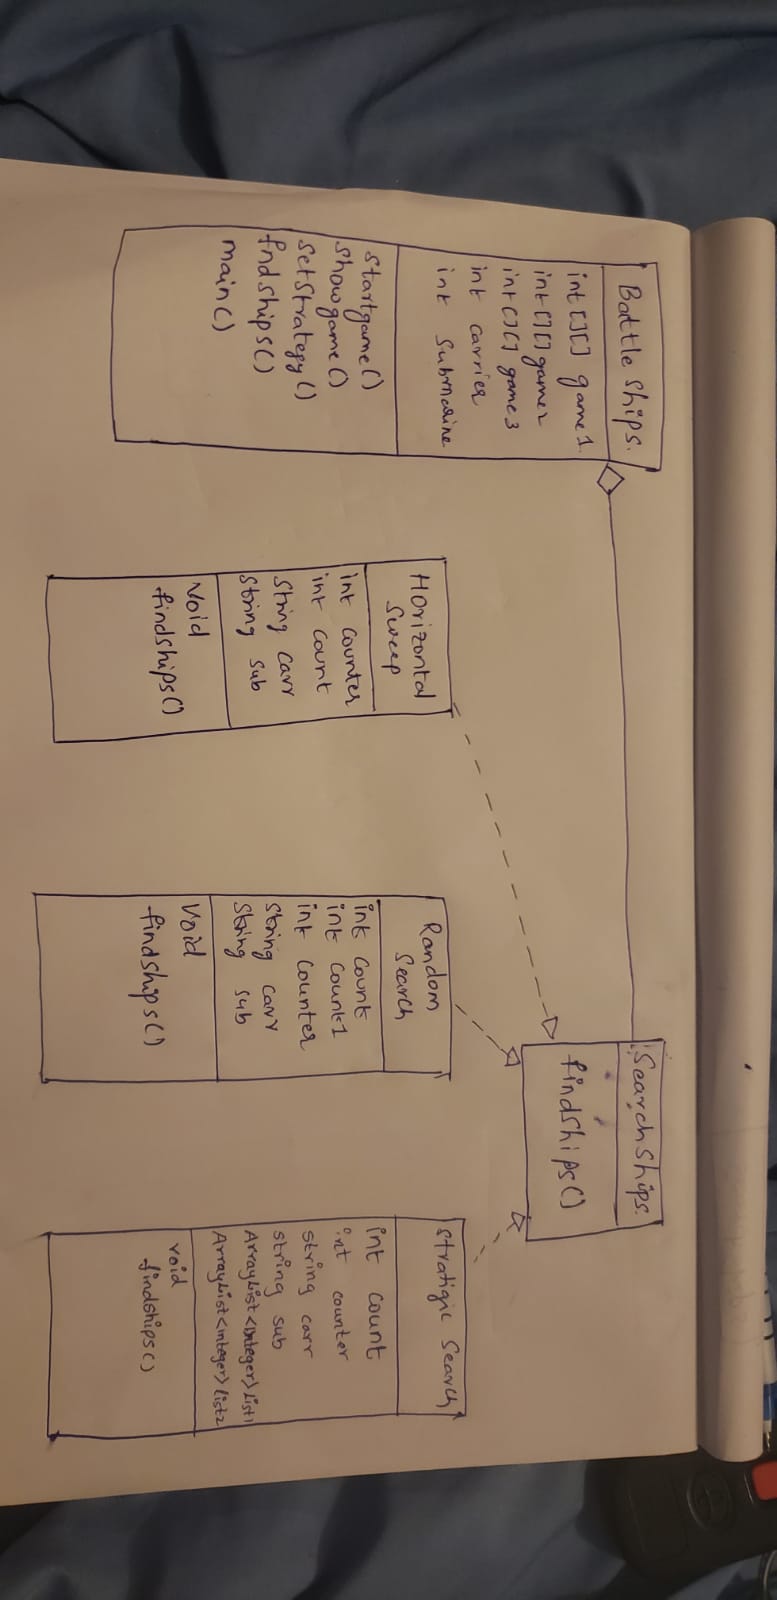 Battle Ships.
int [][] game1.
int[][] game2
int[][] game3
int carrier
int Submarine
startgame()
showgame()
SetStrategy()
fndships()
main()
Searchships.
findships()
Horizontal
Sweep
int counter
int count
String carr
String sub
Void
findships()
Random
Search
int count
int count1
int counter
String carr
String sub
Void
findships()
Stratigic Search
int count
int counter
string carr
string sub
ArrayList<Integer> list1
ArrayList<integer> list2
void
findships()